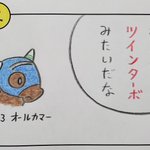 ツインターボ
みたいだな
3 オールカマー